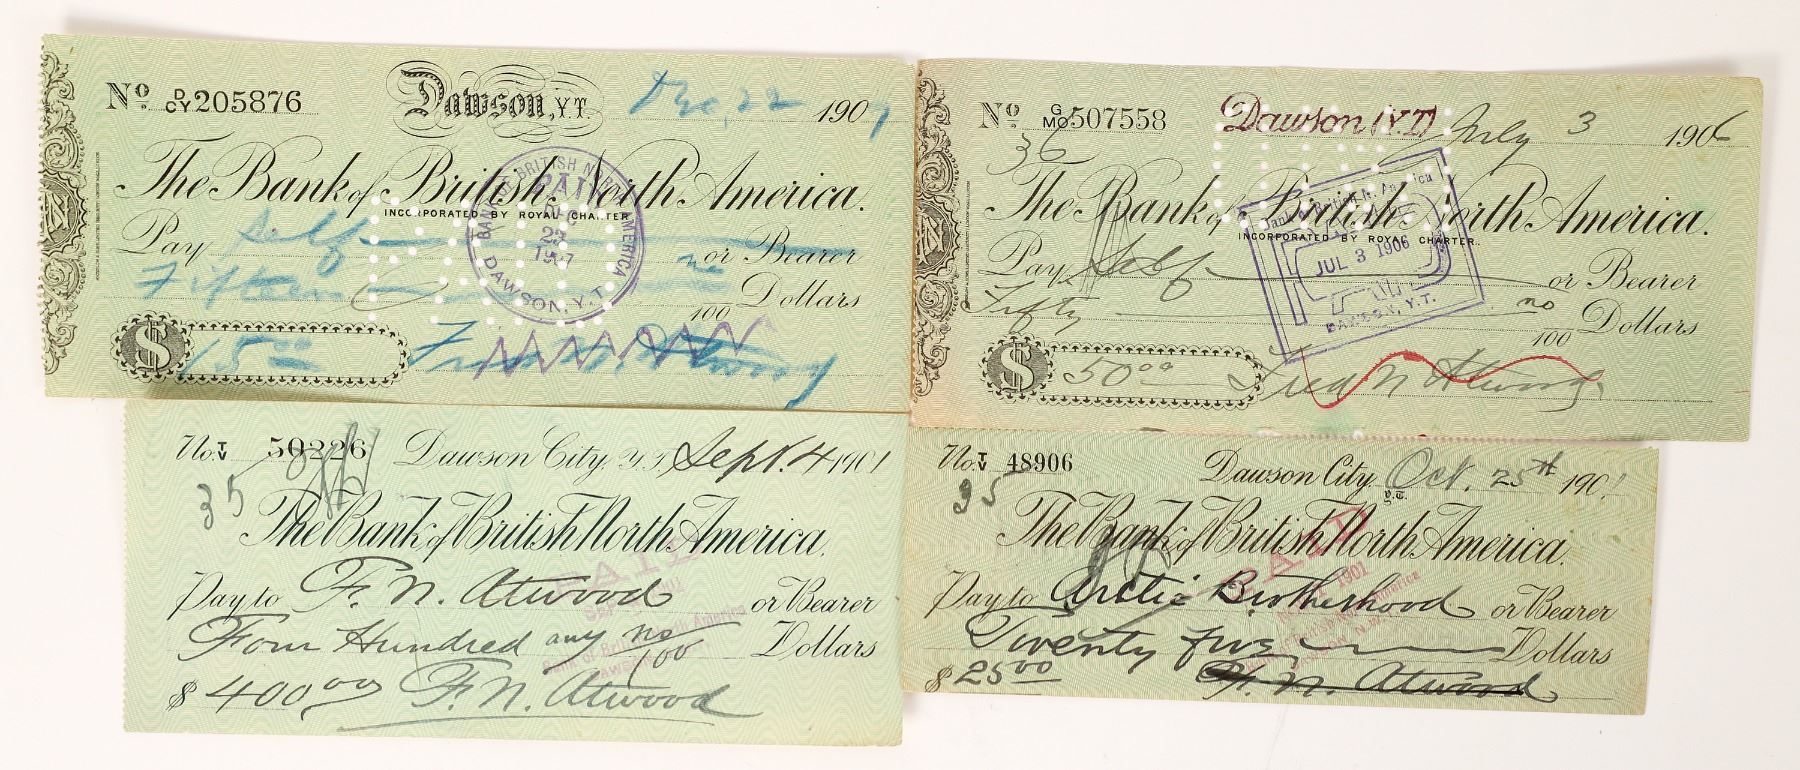 No. D/CY 205876 Dawson, Y.T. Dec, 22 1907
The Bank of British North America.
INCORPORATED BY ROYAL CHARTER
Pay Self or Bearer
Fifteen no/100 Dollars
$ 15.00 Fred N. Atwood
BANK OF BRITISH NORTH AMERICA
PAID
1907
DAWSON, Y.T.
No. G/MO 507558 Dawson (Y.T) July 3 1906
36
The Bank of British North America.
INCORPORATED BY ROYAL CHARTER.
Pay Self or Bearer
Fifty no/100 Dollars
$ 50.00 Fred N Atwood
Bank of British N. America
JUL 3 1906
DAWSON, Y.T.
No. T/V 50226 Dawson City, Y.T. Sept. 4 1901
35
The Bank of British North America.
Pay to F. N. Atwood or Bearer
Four Hundred any no/00 Dollars
$ 400.00 F. N. Atwood
PAID
Bank of British North America
No. T/V 48906 Dawson City, Y.T. Oct. 25th 1901
35
The Bank of British North America.
Pay to Arctic Brotherhood or Bearer
Twenty five Dollars
$ 25.00 F. N. Atwood
PAID
1901